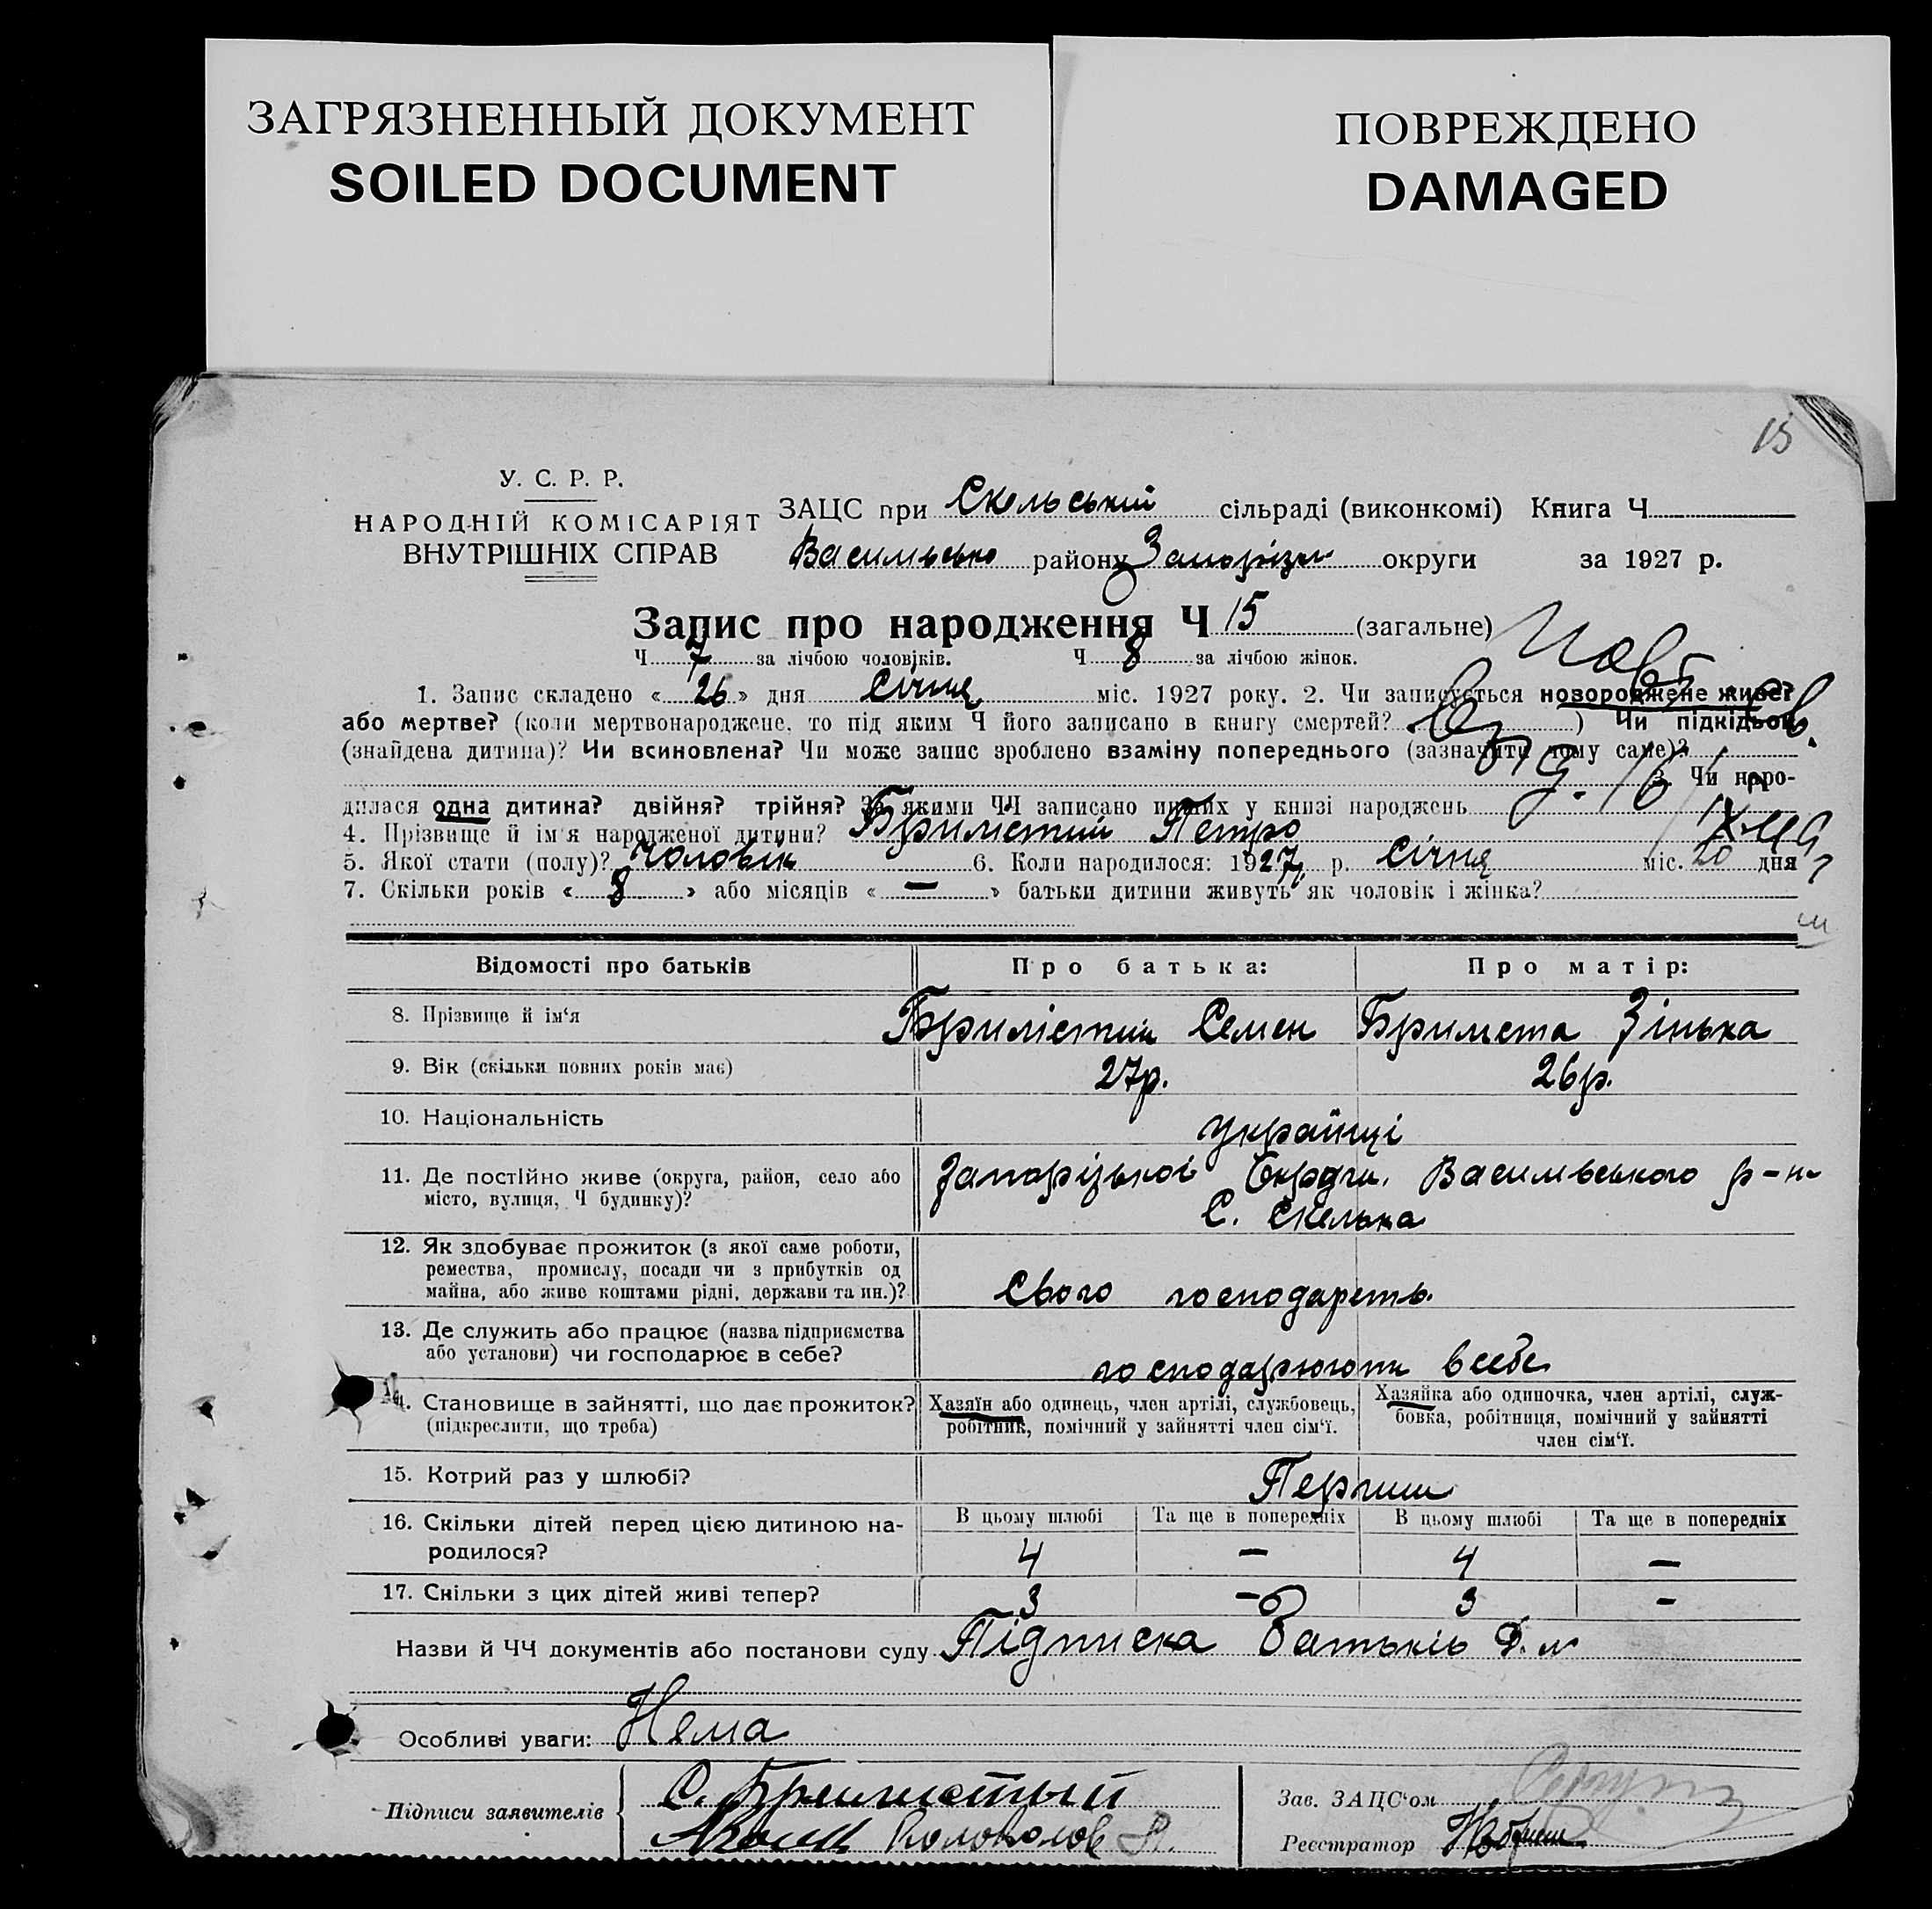 ЗАГРЯЗНЕННЫЙ ДОКУМЕНТ
SOILED DOCUMENT
ПОВРЕЖДЕНО
DAMAGED
15
У. С. Р. Р.
НАРОДНІЙ КОМІСАРІЯТ
ВНУТРІШНІХ СПРАВ
ЗАЦС при Скельській сільраді (виконкомі) Книга Ч.
Васильсько району Запорізьк округи за 1927 р.
Запис про народження Ч 15 (загальне)
Ч 7 за лічбою чоловіків. Ч 8 за лічбою жінок.
1. Запис складено « 26 » дня Січня міс. 1927 року. 2. Чи записується новороджене живе?
або мертве? (коли мертвонароджене, то під яким Ч його записано в книгу смертей? ) Чи підкідьок
(знайдена дитина)? Чи всиновлена? Чи може запис зроблено взаміну попереднього (зазначити чому саме)?
3. Чи наро-
дилася одна дитина? двійня? трійня? За якими ЧЧ записано инших у книзі народжень
4. Прізвище й ім'я народженої дитини? Бримстий Петро
5. Якої стати (полу)? Чоловік 6. Коли народилося: 1927 р. Січня міс. 20 дня
7. Скільки років « 8 » або місяців « — » батьки дитини живуть як чоловік і жінка?
Відомості про батьків Про батька: Про матір:
8. Прізвище й ім'я Семен Зінька
9. Вік (скільки повних років має) 27р. 26р.
10. Національність Українці
11. Де постійно живе (округа, район, село або
місто, вулиця, Ч будинку)?
Запорізької Округи, Васильвського р-н
С. Скелька
12. Як здобуває прожиток (з якої саме роботи,
ремества, промислу, посади чи з прибутків од
майна, або живе коштами рідні, держави та ин.)?
Свого господарств.
13. Де служить або працює (назва підприємства
або установи) чи господарює в себе?
господарюють в себе
14. Становище в зайнятті, що дає прожиток?
(підкреслити, що треба)
Хазяїн або одинець, член артілі, службовець,
робітник, помічний у зайнятті член сім'ї.
Хазяйка або одиночка, член артілі, служ-
бовка, робітниця, помічний у зайнятті
член сім'ї.
15. Котрий раз у шлюбі? Перший
16. Скільки дітей перед цією дитиною на-
родилося?
В цьому шлюбі Та ще в попередніх В цьому шлюбі Та ще в попередніх
4 — 4 —
17. Скільки з цих дітей живі тепер? 3 - 3 -
Назви й ЧЧ документів або постанови суду Підписка Батьків
Особливі уваги: Нема
Підписи заявителів
Колоколов
Зав. ЗАЦС'ом
Реєстратор